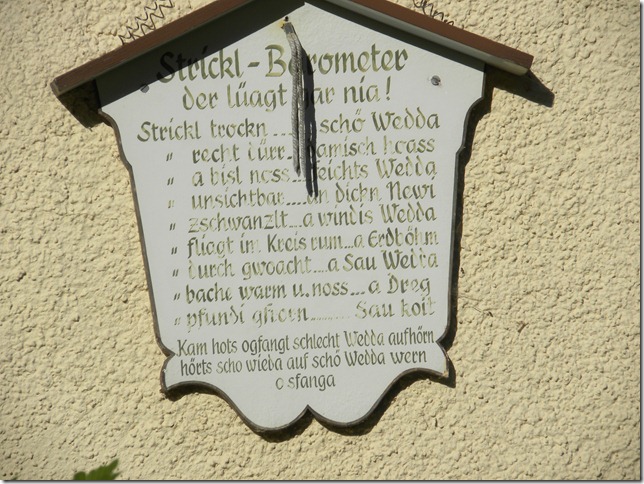 Strickl - Barometer
der lüagt gar nia!
Strickl trockn .... schö Wedda
" recht dürr... damisch hoass
" a bisl noss.... feichts Wedda
" unsichtbar....an dickn Newi
" zschwanzlt...a windis Wedda
" fliagt im Kreis rum...a Erdböhm
" durch gwoacht...a Sau Wedda
" bache warm u. noss...a Dreg
" pfundi gfreen........ Sau koit
Kam hots ogfangt schlecht Wedda aufhörn
hörts scho wieda auf schö Wedda wern
o sfanga